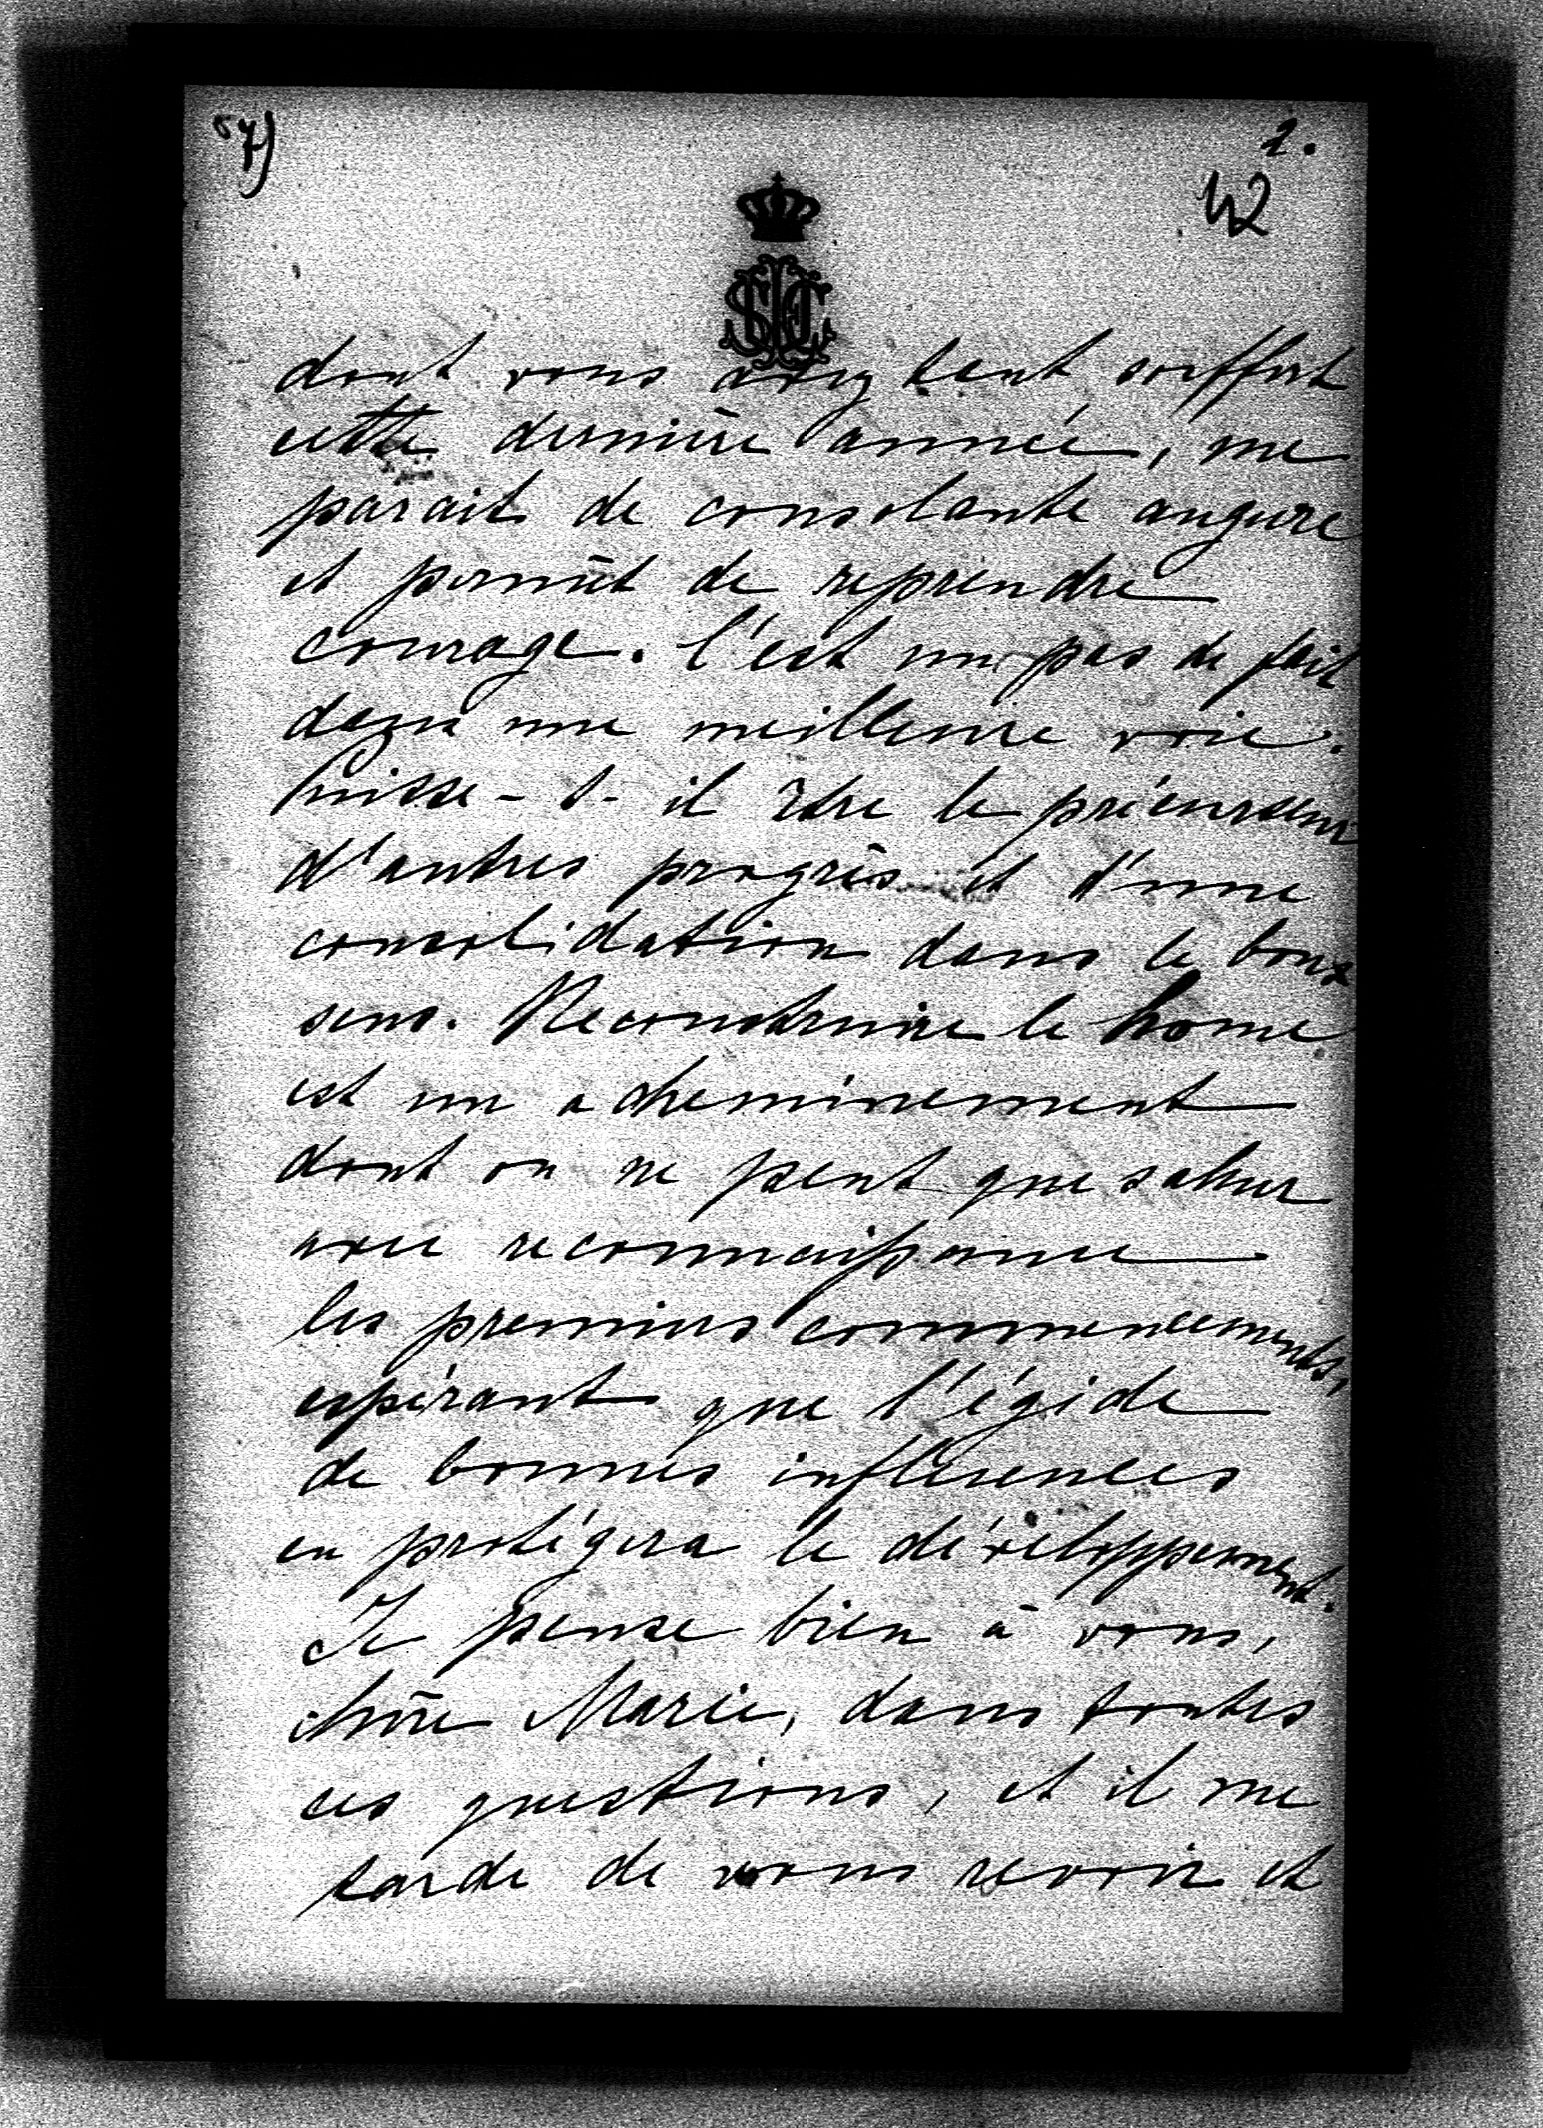 57)
2.
42
dont vous avez tant souffert
cette dernière année, me
parait de consolante augure
et permêt de reprendre
courage. C'est un pas de fait
dans une meilleure voie.
Puisse-t-il être le précurseur
d'autres progrès et d'une
consolidation dans le bon
sens. Reconstruire le home
est un acheminement
dont on ne peut que saluer
avec reconnaissance
les premiers commencements,
espérant que l'égide
de bonnes influences
en protégera le développement.
Je pense bien à vous,
chère Marie, dans toutes
ces questions, et il me
tarde de vous revoir et